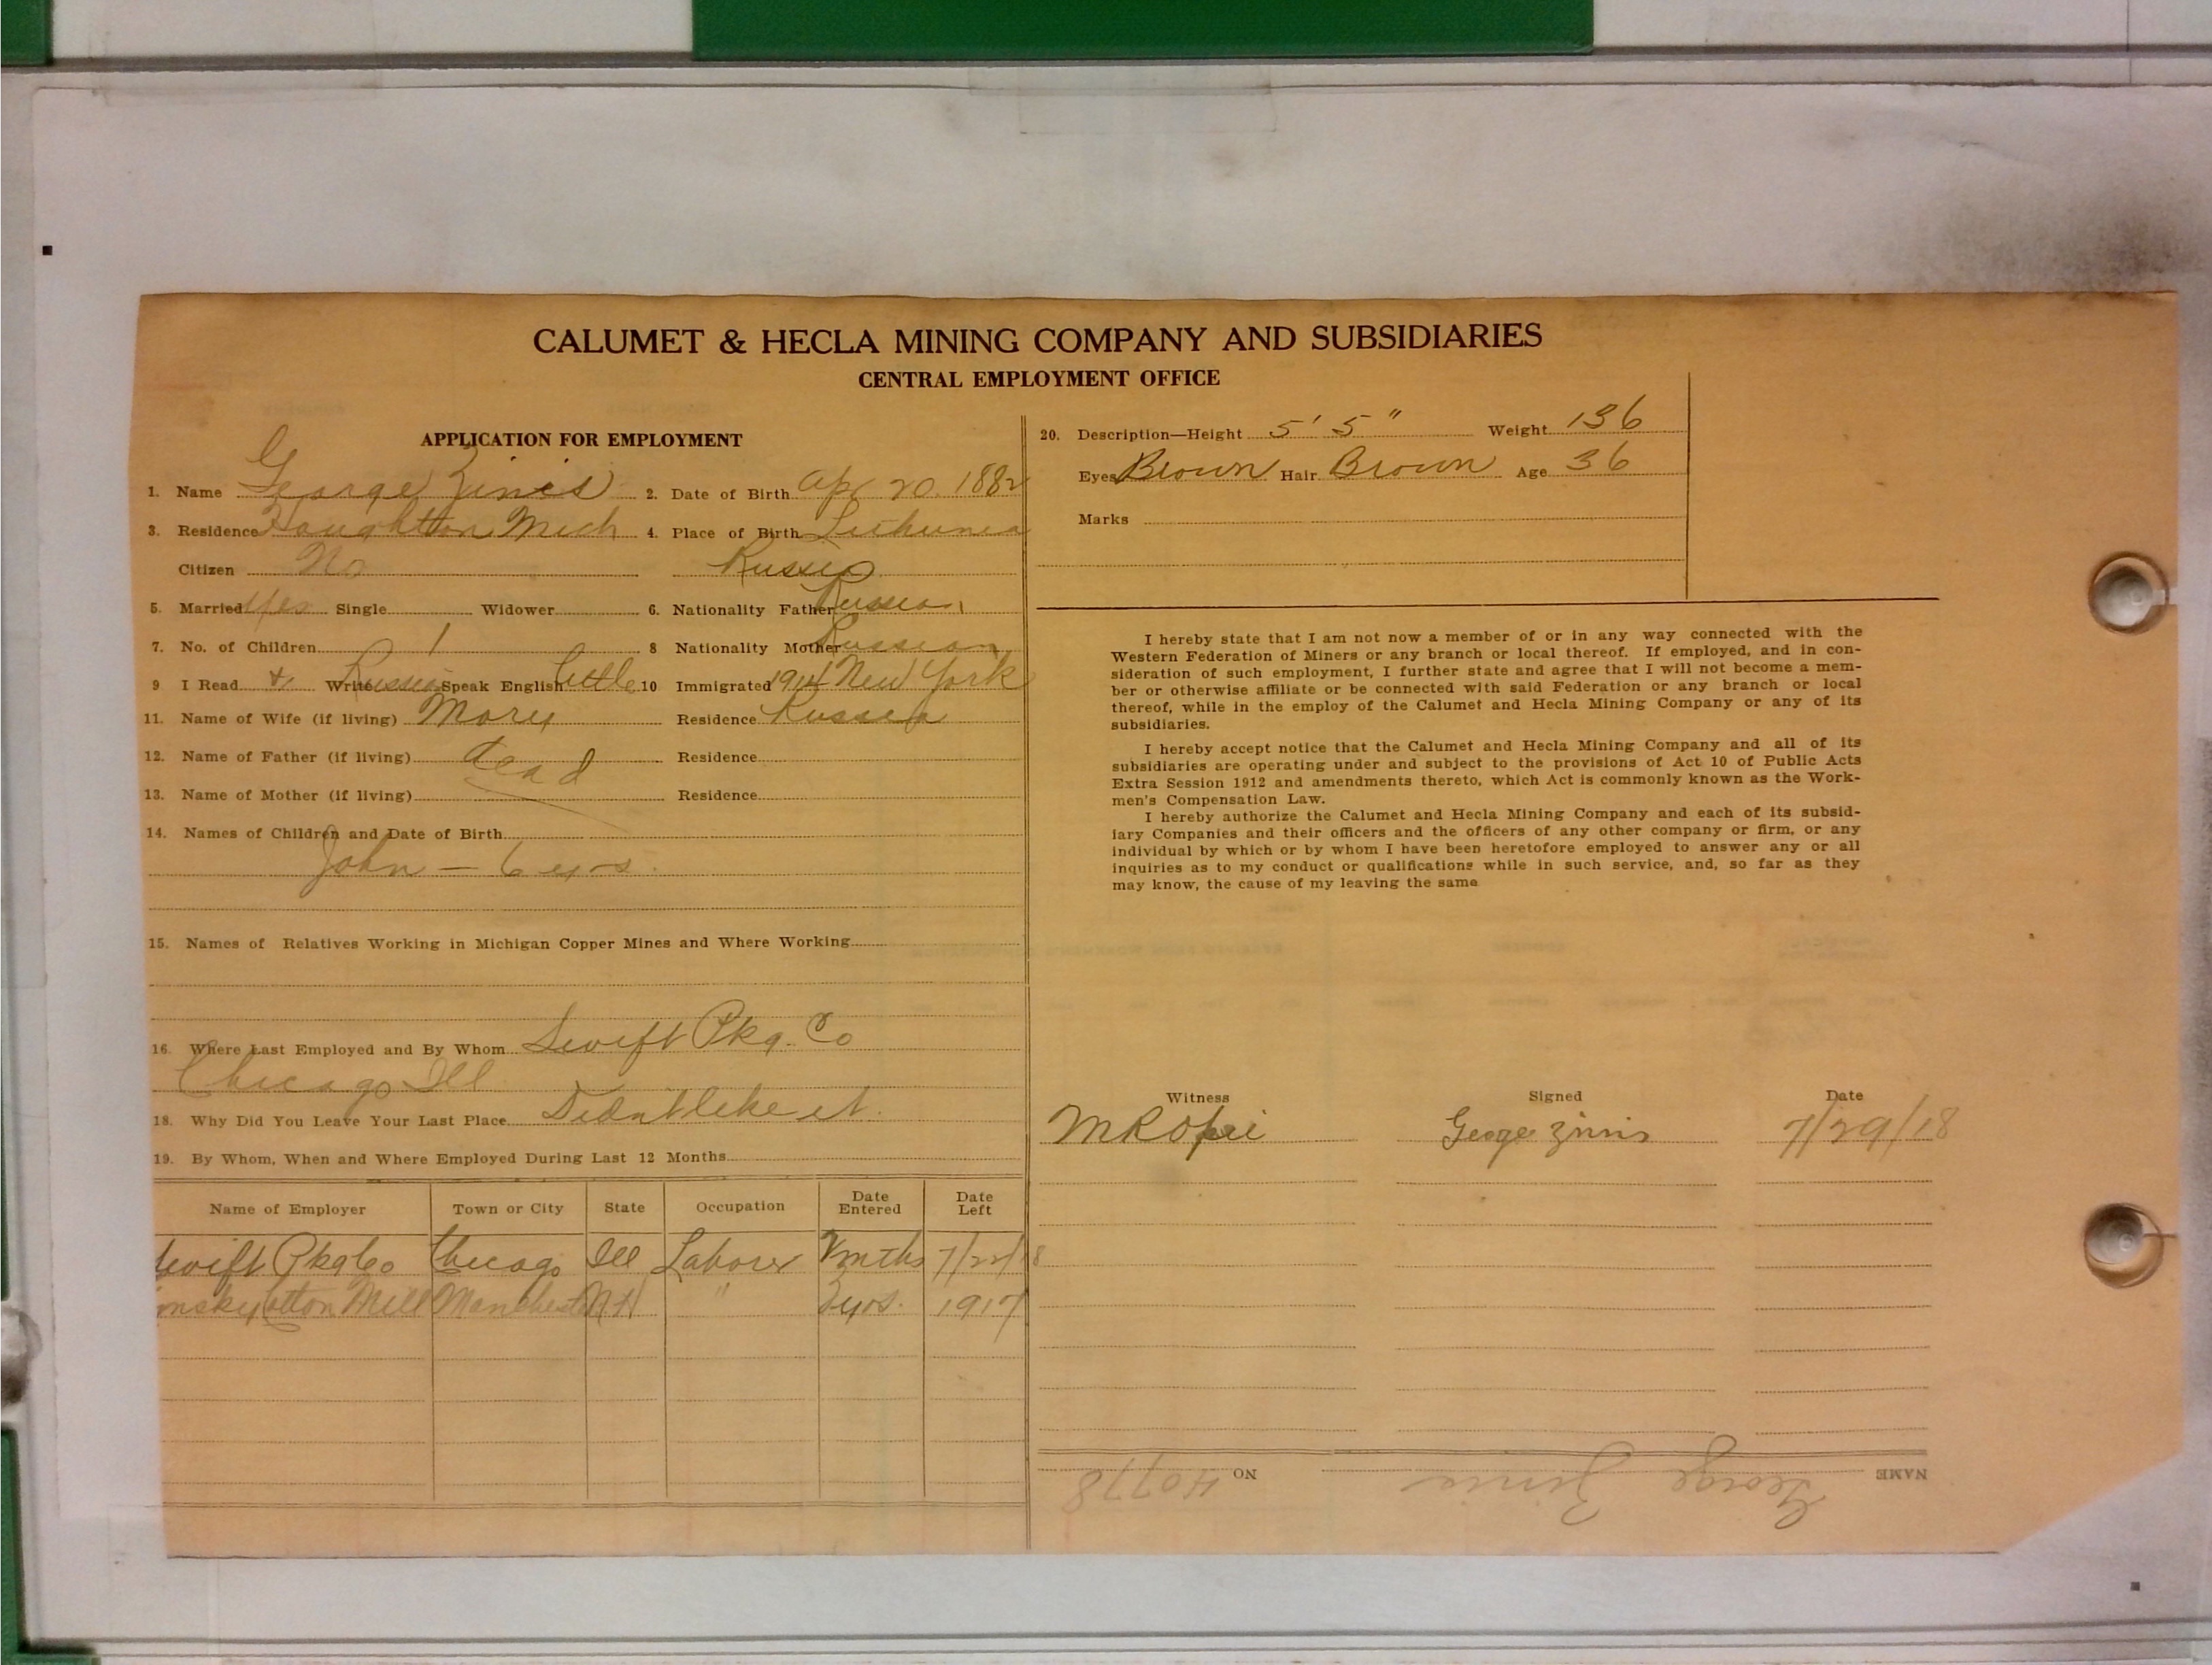 CALUMET & HECLA MINING COMPANY AND SUBSIDIARIES
CENTRAL EMPLOYMENT OFFICE
APPLICATION FOR EMPLOYMENT
1. Name George Zinis 2. Date of Birth Apr 20. 1882
3. Residence Houghton Mich 4. Place of Birth
Citizen No Russia
5. Married Yes Single Widower 6. Nationality Father Russian
7. No. of Children 1 8 Nationality Mother Russian
9 I Read & Write Russia Speak English little 10 Immigrated 1914 New York
11. Name of Wife (if living) Mary Residence Russia
12. Name of Father (if living) dead Residence
13. Name of Mother (if living) Residence
14. Names of Children and Date of Birth
John – 6 yrs.
15. Names of Relatives Working in Michigan Copper Mines and Where Working
16. Where Last Employed and By Whom Swift Pkg. Co
Chicago Ill
18. Why Did You Leave Your Last Place Didnt like it.
19. By Whom, When and Where Employed During Last 12 Months
Name of Employer Town or City State Occupation Date Entered Date Left
Swift Pkg Co Chicago Ill Laborer mths 7/22/18
Cotton Mill Manchester N H " yrs. 1917
20. Description—Height 5' 5" Weight 136
Eyes Brown Hair Brown Age 36
Marks
I hereby state that I am not now a member of or in any way connected with the
Western Federation of Miners or any branch or local thereof. If employed, and in con-
sideration of such employment, I further state and agree that I will not become a mem-
ber or otherwise affiliate or be connected with said Federation or any branch or local
thereof, while in the employ of the Calumet and Hecla Mining Company or any of its
subsidiaries.
I hereby accept notice that the Calumet and Hecla Mining Company and all of its
subsidiaries are operating under and subject to the provisions of Act 10 of Public Acts
Extra Session 1912 and amendments thereto, which Act is commonly known as the Work-
men's Compensation Law.
I hereby authorize the Calumet and Hecla Mining Company and each of its subsid-
iary Companies and their officers and the officers of any other company or firm, or any
individual by which or by whom I have been heretofore employed to answer any or all
inquiries as to my conduct or qualifications while in such service, and, so far as they
may know, the cause of my leaving the same
Witness Signed Date
George Zinis 7/29/18
NAME George Zinis NO 40778